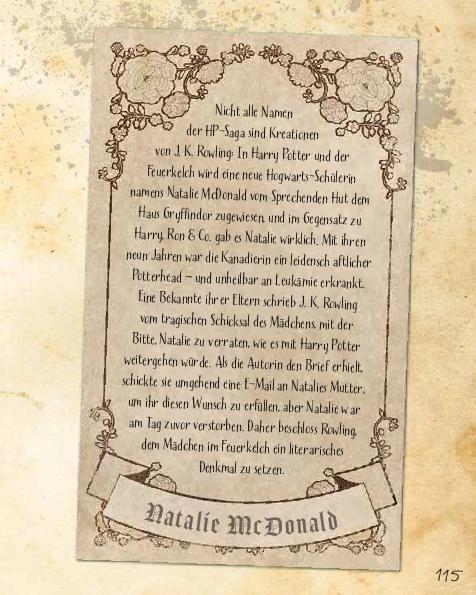 Nicht alle Namen
der HP-Saga sind Kreationen
von J. K. Rowling: In Harry Potter und der
Feuerkelch wird eine neue Hogwarts-Schülerin
namens Natalie McDonald vom Sprechenden Hut dem
Haus Gryffindor zugewiesen, und im Gegensatz zu
Harry, Ron & Co. gab es Natalie wirklich. Mit ihren
neun Jahren war die Kanadierin ein leidensch aftlicher
Potterhead – und unheilbar an Leukämie erkrankt.
Eine Bekannte ihrer Eltern schrieb J. K. Rowling
vom tragischen Schicksal des Mädchens, mit der
Bitte, Natalie zu verraten, wie es mit Harry Potter
weitergehen würde. Als die Autorin den Brief erhielt,
schickte sie umgehend eine E-Mail an Natalies Mutter,
um ihr diesen Wunsch zu erfüllen, aber Natalie war
am Tag zuvor verstorben. Daher beschloss Rowling,
dem Mädchen im Feuerkelch ein literarisches
Denkmal zu setzen.
Natalie McDonald
115